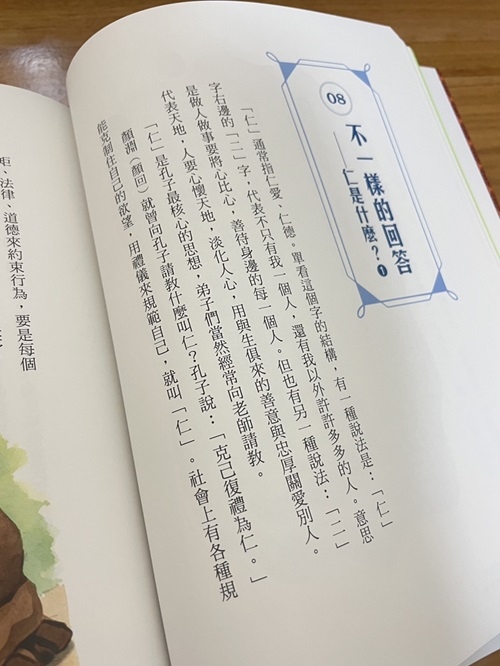 08
不一樣的回答
——仁是什麼？❶
「仁」通常指仁愛、仁德。單看這個字的結構，有一種說法是：「仁」
字右邊的「二」字，代表不只有我一個人，還有我以外許許多多的人。意思
是做人做事要將心比心，善待身邊的每一個人。但也有另一種說法：「二」
代表天地，人要心懷天地，淡化人心，用與生俱來的善意與忠厚關愛別人。
「仁」是孔子最核心的思想，弟子們當然經常向老師請教。
顏淵（顏回）就曾向孔子請教什麼叫仁？孔子說：「克己復禮為仁。」
能克制住自己的欲望，用禮儀來規範自己，就叫「仁」。社會上有各種規
矩、法律、道德來約束行為，要是每個